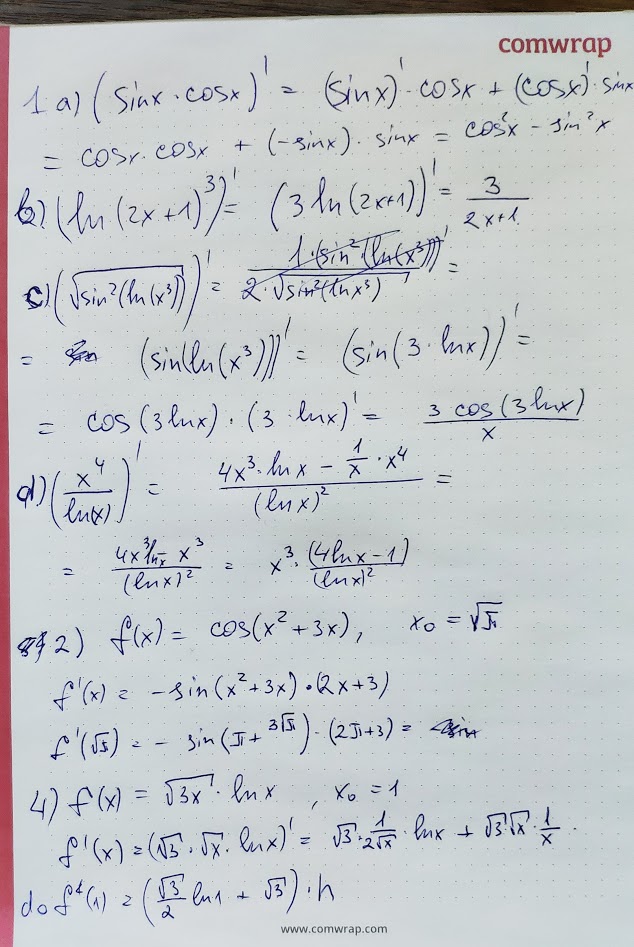 comwrap
1 a) (sinx · cosx)' = (sinx)' · cosx + (cosx)' · sinx
= cosx · cosx + (-sinx) · sinx = cos²x - sin²x
b) (ln(2x+1)³)' = (3 ln(2x+1))' = 3/(2x+1)
c) (√sin²(ln(x³)))' = 1·(sin²(ln(x³)))'/(2·√sin²(lnx³)) =
= (sin(ln(x³)))' = (sin(3·lnx))' =
= cos(3lnx) · (3·lnx)' = 3 cos(3lnx)/x
d) (x⁴/ln(x))' = (4x³·lnx - 1/x · x⁴)/(lnx)² =
= (4x³lnx - x³)/(lnx)² = x³ · (4lnx-1)/(lnx)²
2) f(x) = cos(x²+3x), x₀ = √π
f'(x) = -sin(x²+3x)·(2x+3)
f'(√π) = - sin(π+3√π)·(2π+3) =
4) f(x) = √3x · lnx, x₀ = 1
f'(x) = (√3·√x·lnx)' = √3·1/(2√x)·lnx + √3·√x·1/x.
do f'(1) = (√3/2 ln1 + √3)·h
www.comwrap.com